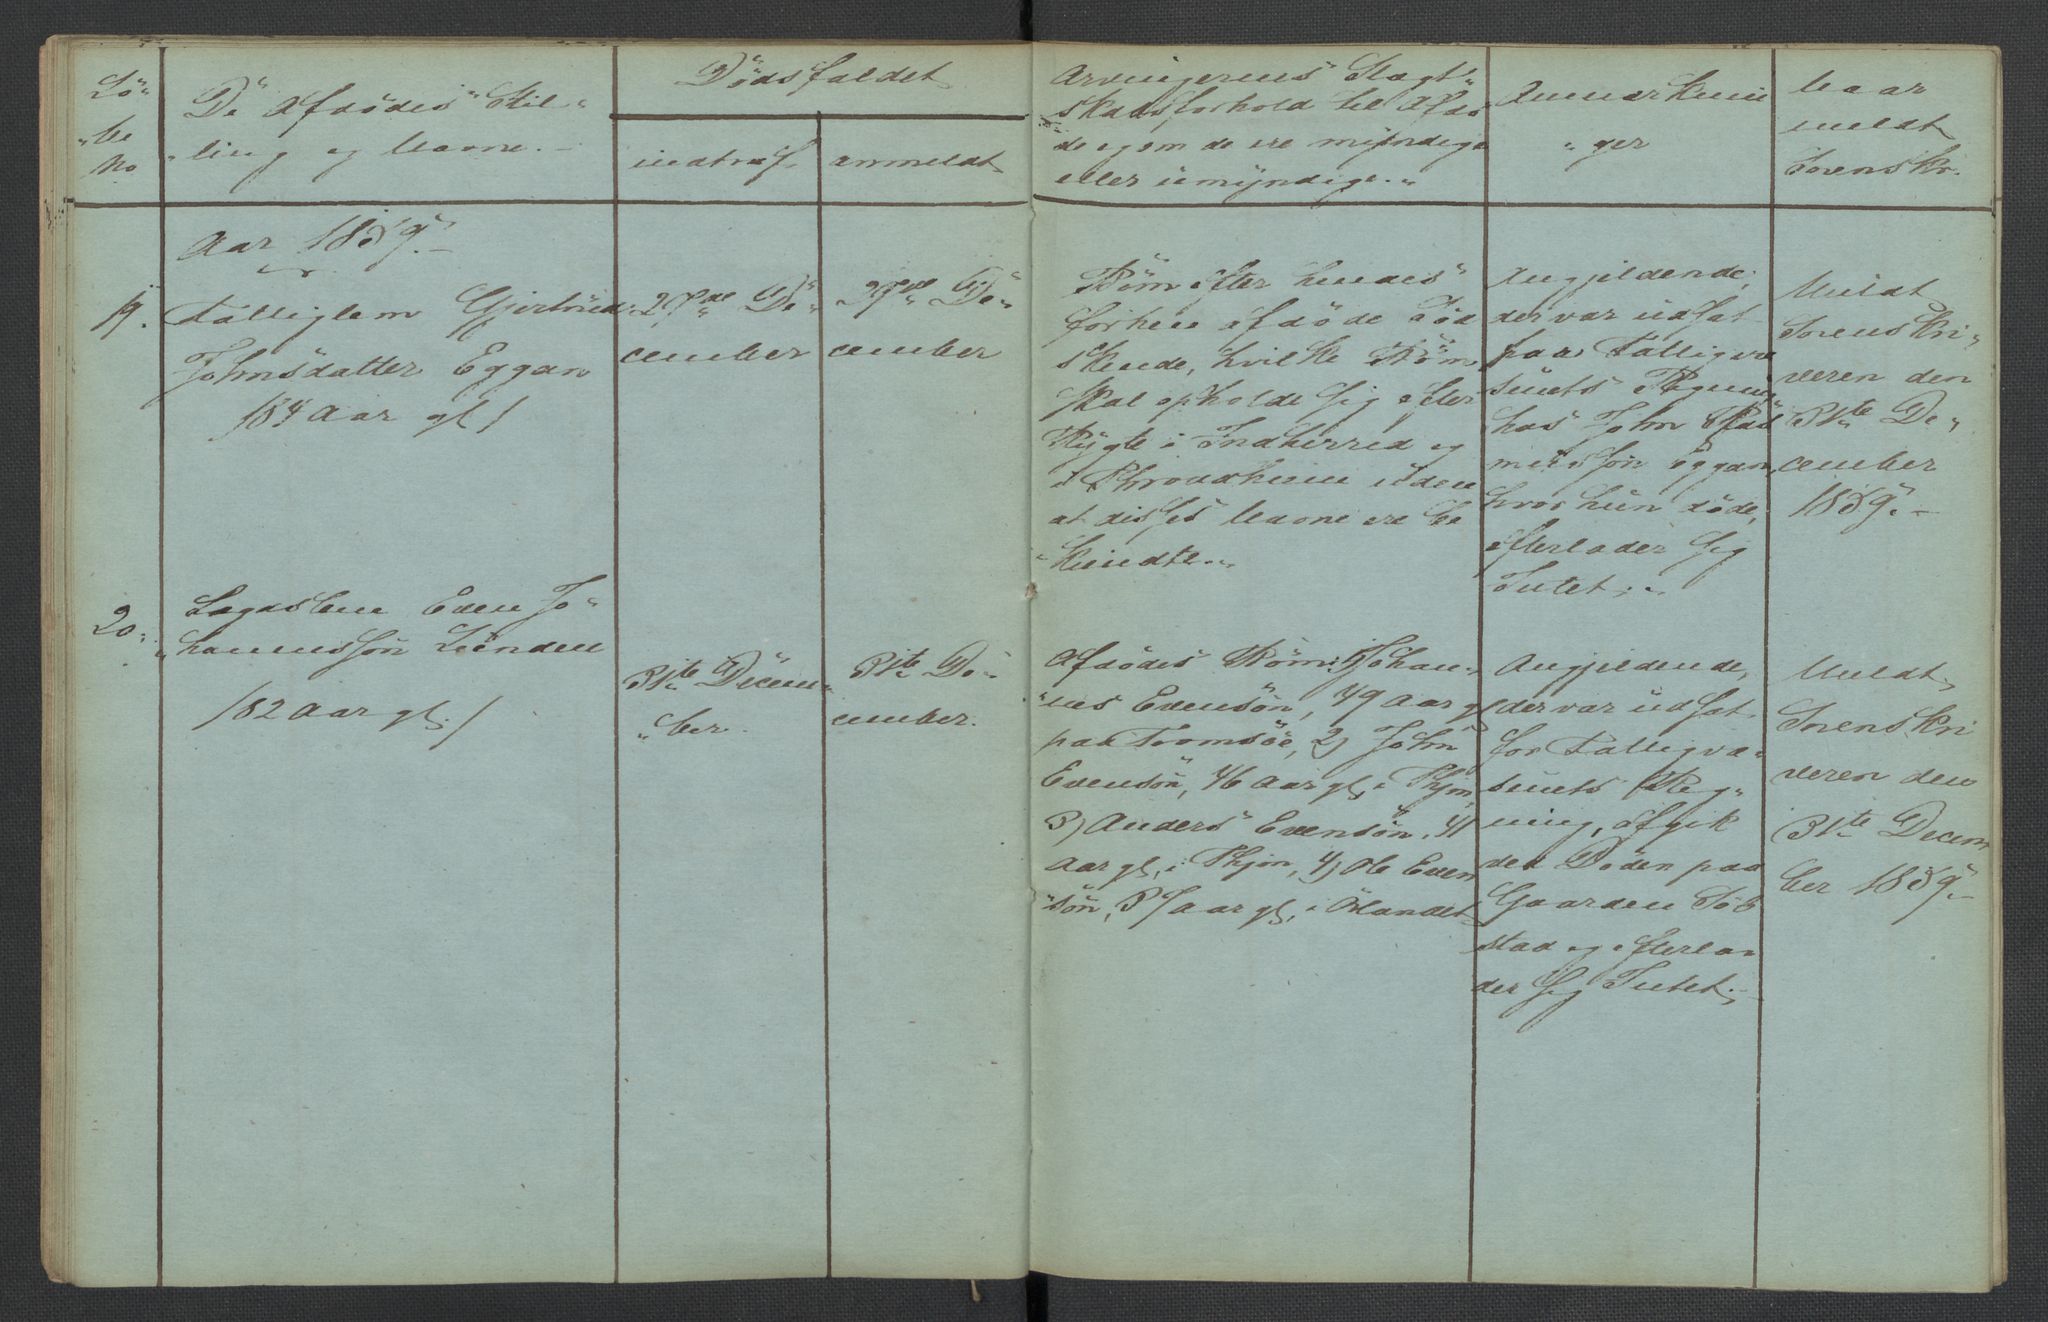 Lö-
be
No
De Afdödes Stil-
ling og Navne.-
Dödsfaldet
indtraf
anmeldt
Arvingernes Slægt-
skabsforhold til Afdö
de og om de ere myndige
eller umyndige.
Anmærknin
ger
Naar
meldt
Sorenskr.
Aar 1859.
19.
Fattiglem Gjertrud
Johnsdatter Eggan
/84 Aar gl/
December
December
Börn efter hendes
forhen afdöde Söd
skende, hvilke Börn
skal opholde sig efter
Rygte i Indherred og
i Throndhjem uden
at disses Navne ere be
kjendte.
Angjeldende,
der var udsat
paa Fattigvæ
senets Regning
hos John Ras
mussön Eggan,
hvor hun döde,
efterlader sig
Intet.
Meldt
Sorenskri-
veren den
31te De-
cember
1859.
20.
Lægdslem Even Jo-
hannessön Lunden
/82 Aar gl./
31te Decem-
ber.
31te De-
cember.
Afdödes Börn: 1) Johan-
nes Evensön, 49 Aar gl
paa Tromsöe, 2) John
Evensön, 46 Aar gl, i Thjem
3) Anders Evensön, 41
Aar gl, i Thjem, 4) Ole Even
sön, 37 Aar gl, i Örlandet
Angjeldende,
der var udsat
for Fattigvæ-
senets Reg-
ning, afgik
ved Döden paa
Gaarden
stad og efterla-
der sig Intet.
Meldt
Sorenskri
veren den
31te Decem
ber 1859.